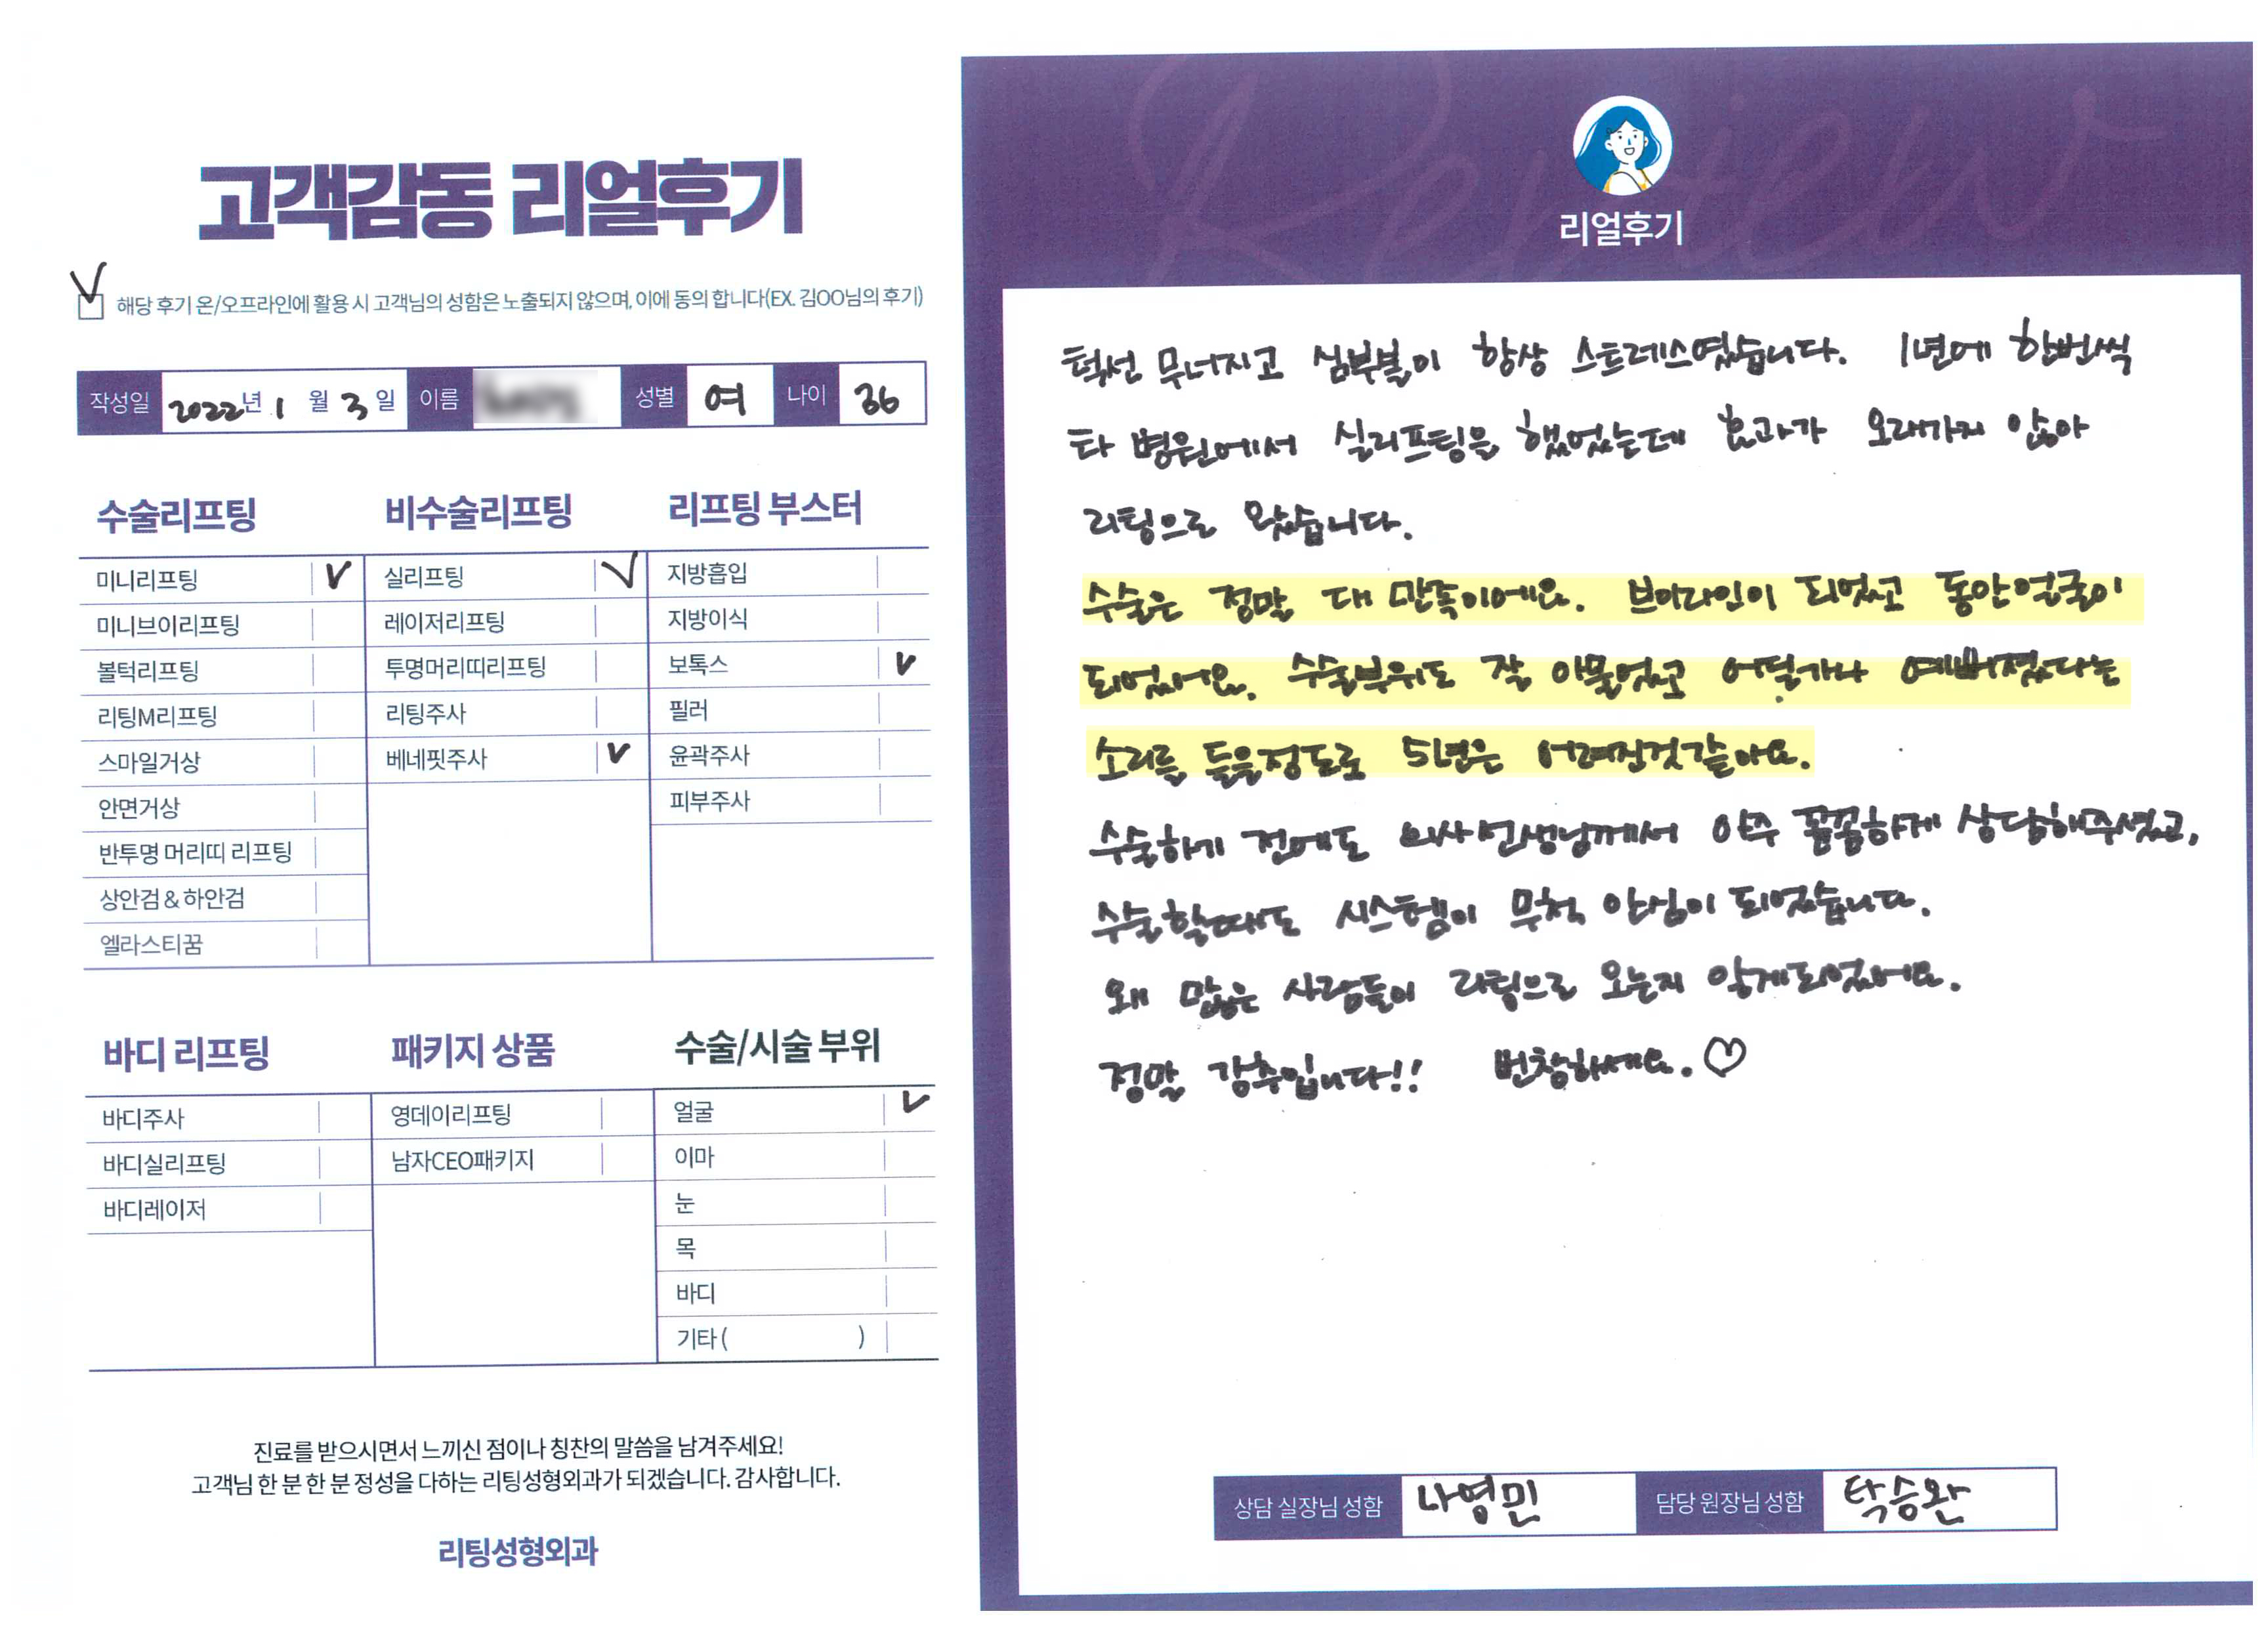 고객감동 리얼후기
V 해당 후기 온/오프라인에 활용 시 고객님의 성함은 노출되지 않으며, 이에 동의 합니다(EX. 김OO님의 후기)
작성일 2022년 1월 3일 이름 성별 여 나이 36
수술리프팅
미니리프팅 V
미니브이리프팅
볼턱리프팅
리팅M리프팅
스마일거상
안면거상
반투명 머리띠 리프팅
상안검 & 하안검
엘라스티꿈
비수술리프팅
실리프팅 V
레이저리프팅
투명머리띠리프팅
리팅주사
베네핏주사 V
리프팅 부스터
지방흡입
지방이식
보톡스 V
필러
윤곽주사
피부주사
바디 리프팅
바디주사
바디실리프팅
바디레이저
패키지 상품
영데이리프팅
남자CEO패키지
수술/시술 부위
얼굴 V
이마
눈
목
바디
기타 ( )
진료를 받으시면서 느끼신 점이나 칭찬의 말씀을 남겨주세요!
고객님 한 분 한 분 정성을 다하는 리팅성형외과가 되겠습니다. 감사합니다.
리팅성형외과
Review
리얼후기
턱선 무너지고 심부볼이 항상 스트레스였습니다. 1년에 한번씩
타 병원에서 실리프팅을 했었는데 효과가 오래가지 않아
리팅으로 왔습니다.
수술은 정말 대 만족이에요. 브이라인이 되었고 동안얼굴이
되었어요. 수술부위도 잘 아물었고 어딜가나 예뻐졌다는
소리를 들을정도로 5년은 어려진것같아요.
수술하기 전에도 의사선생님께서 아주 꼼꼼하게 상담해주셨고,
수술할때도 시스템이 무척 안심이 되었습니다.
왜 많은 사람들이 리팅으로 오는지 알게되었어요.
정말 강추입니다!! 번창하세요. ♡
상담 실장님 성함 나영민 담당 원장님 성함 탁승완